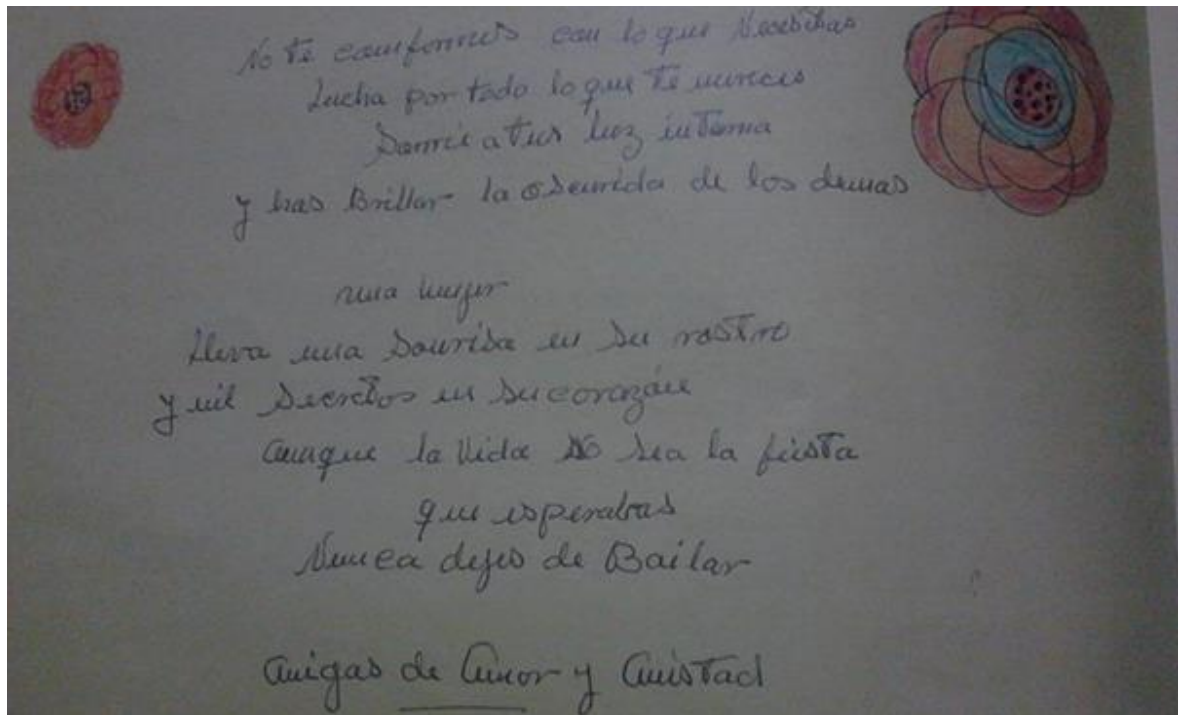 No te conformes con lo que Necesitas
Lucha por todo lo que te mereces
Sonrie a tus luz interna
y has Brillar la oscurida de los demas
una mujer
lleva una Sonrisa en Su rostro
y mil Secretos en Su corazón
Aunque la Vida No Sea la fiesta
que esperabas
Nunca dejes de Bailar
Amigas de Amor y Amistad